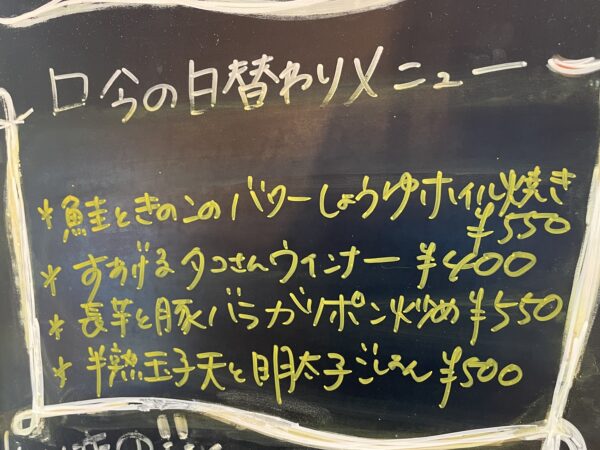 口今の日替わりメニュー
*鮭ときのこのバターしょうゆホイル焼き
¥550
*すあげるタコさんウィンナー ¥400
*長芋と豚バラガリポン炒め ¥550
*半熟玉子天と明太子ごはん ¥500